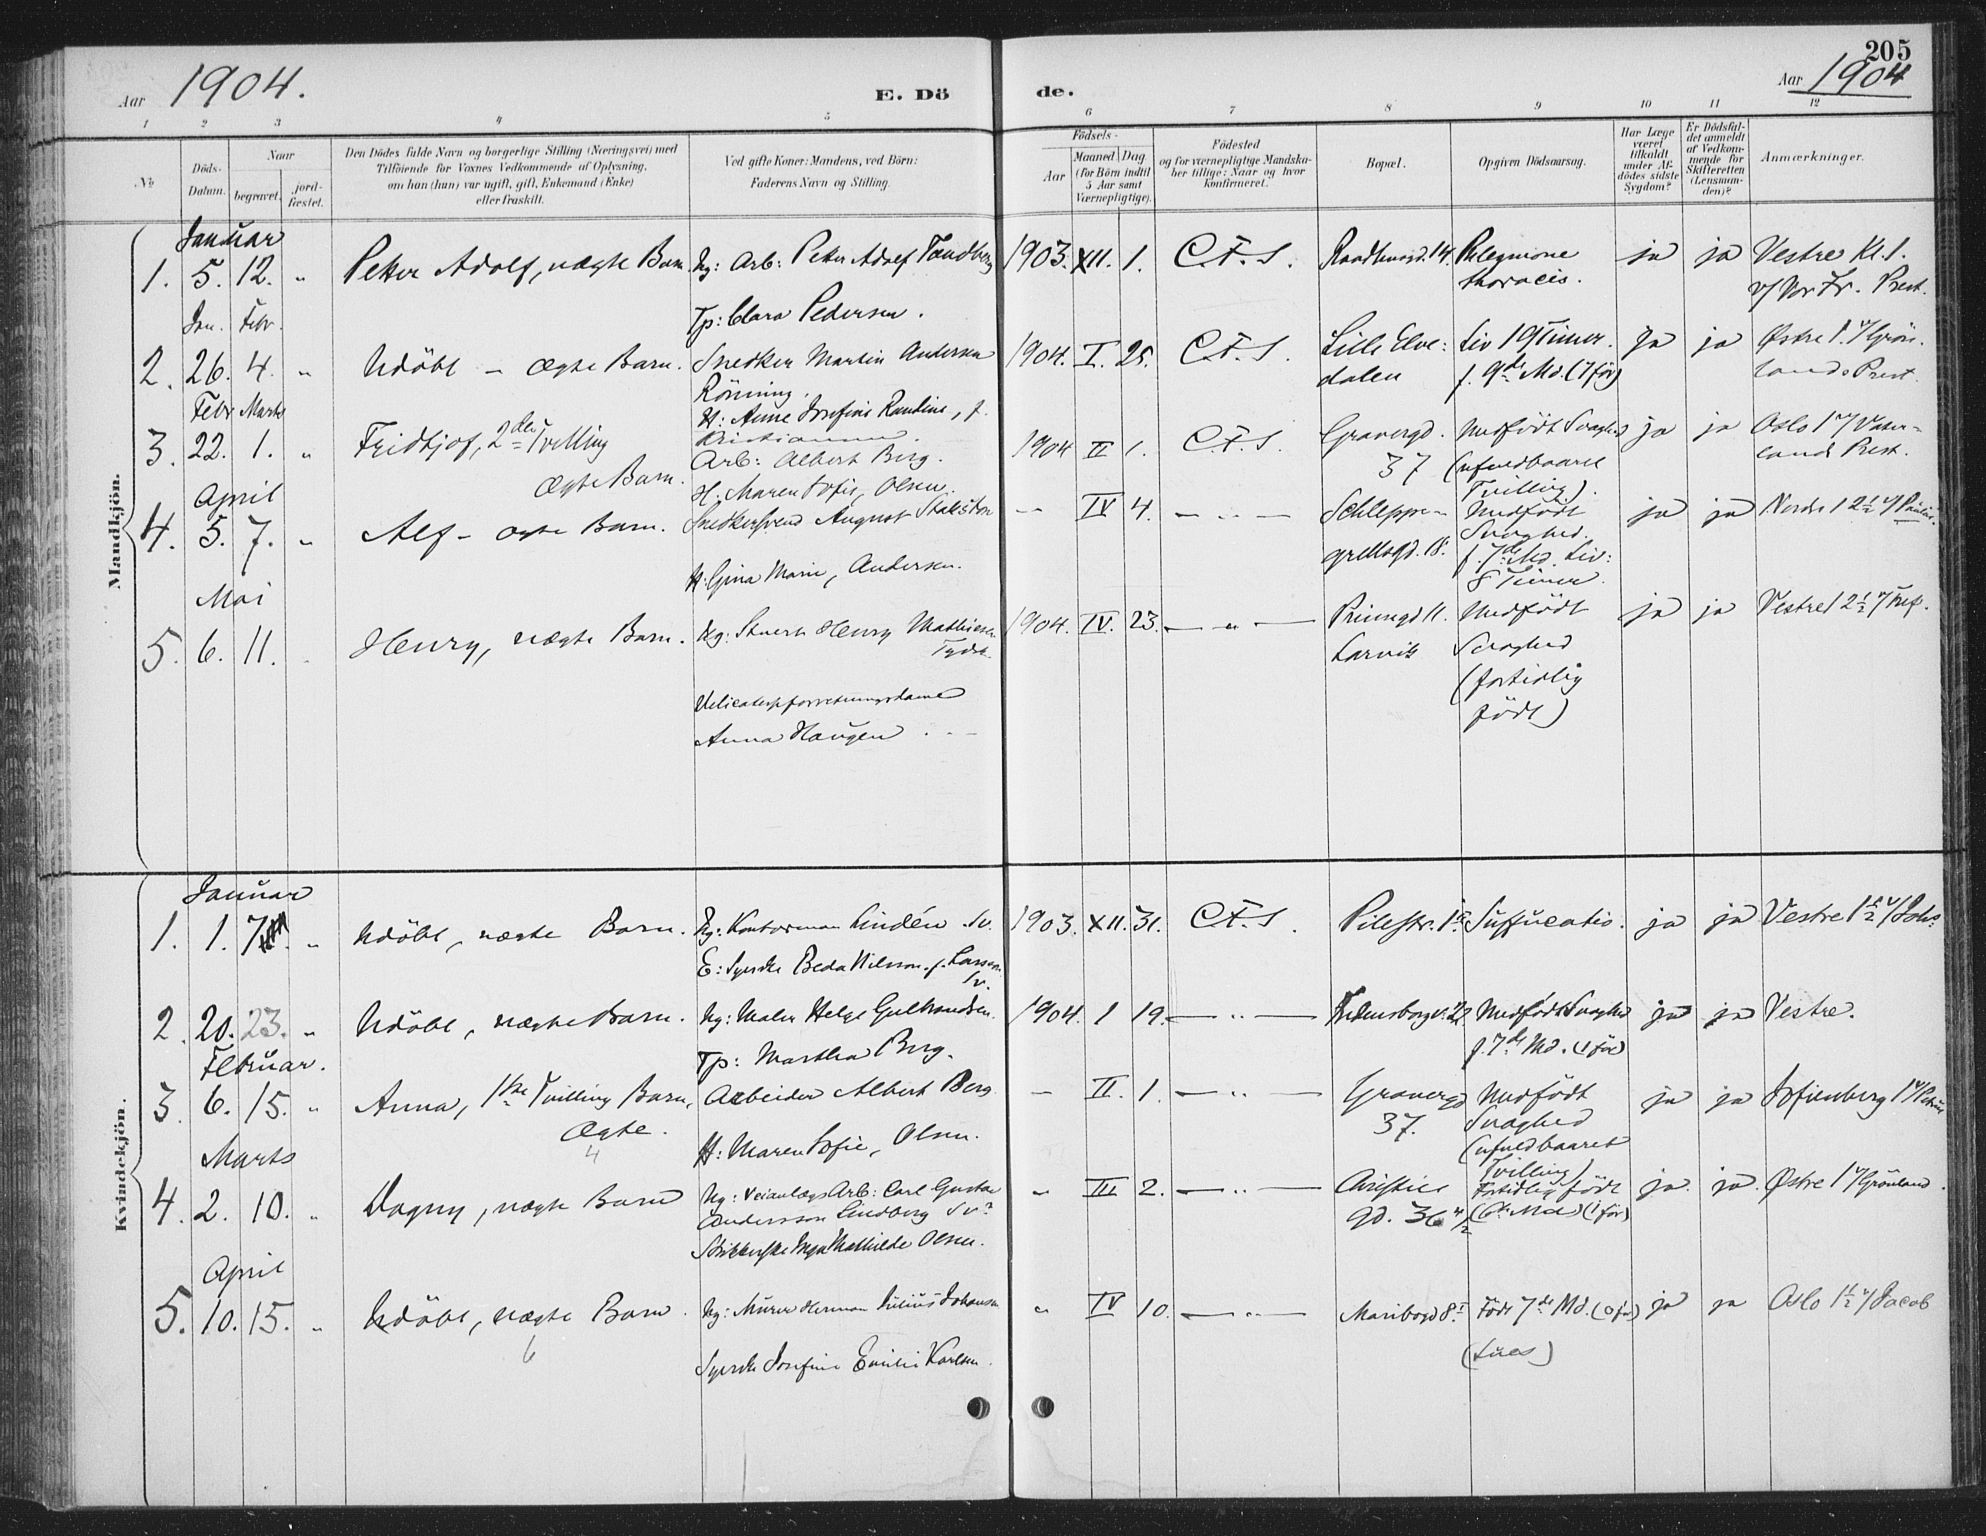 205
Aar 1904. E. Dö de. Aar 1904
1 2 3 4 5 6 7 8 9 10 11 12
№
Döds-Datum.
Naar
begravet.
jord-fæstet.
Den Dödes fulde Navn og borgerlige Stilling (Næringsvei) med
Tilföiende for Voxnes Vedkommende af Oplysning,
om han (hun) var ugift, gift, Enkemand (Enke)
eller fraskilt.
Ved gifte Koner: Mandens, ved Börn:
Faderens Navn og Stilling.
Födsels-
Aar
Maaned Dag
(for Börn indtil
5 Aar samt
Værnepligtige).
Födested
og for værnepligtige Mandska-
ber tillige: Naar og hvor
konfirmeret.
Bopæl.
Opgiven Dödsaarsag.
Har Læge
været
tilkaldt
under Af-
dödes sidste
Sygdom?
Er Dödsfal-
det anmeldt
af Vedkom-
mende for
Skifteretten
(Lensman-
den)?
Anmærkninger.
Mandkjön.
Januar
1. 5. 12. " Peter Adolf, uægte Barn. Ug: Arb: Peter Adolf Tandberg 1903. XII. 1. C. F. S. Raadhusgd. 14. Phlegmone ja ja Vestre Kl. 1.
thoracis. v/ Vor Fr. Prest.
Tp: Clara Pedersen.
Jan. Febr.
2. 26. 4. " Udöbt – Ægte Barn. Snedker Martin Andersen 1904. I. 25. C. F. S. Lille Elve- Liv 19 Timer. ja ja Østre 1. v/ Grön-
Rönning. dalen f. 9de Md. (7 för) lands Prest.
H: Anne Josefine Randine, f.
Kristiansen.
Febr Marts
3. 22. 1. " Fridtjof, 2den Tvilling Arb: Albert Berg. 1904 II 1. C. F. S. Gravergd. Medfödt Svaghed ja ja Oslo 1 v/ Vater-
37 (ufuldbaaret lands Prest.
Ægte Barn. H. Maren Sofie, Olsen. Tvilling).
April
4. 5. 7. " Alf – ægte Barn. Snedkersvend August — IV 4. — " — Schleppe- Medfödt ja ja Nordre 1 2½ v/
grellsgd. 18. Svaghed.
f. 7de Md. Liv:
H: Gina Marie, Andersen. 8 Timer.
Mai
5. 6. 11. Henry, uægte Barn. Ug: Stuert Henry Mathiesen 1904. IV. 23. — " — Prinsgd 11. Medfödt ja ja Vestre 1 2½ v/
Tydsk. Larvik Svaghed
(fortidlig
Delicatesseforretningsdame födt)
Anna Haugen
Kvindekjön.
Januar
1. 1. 7 " Udöbt, uægte Barn. Ug: Kontorman Lindén Sv. 1903. XII. 31. C. F. S. Pilestr. Suffucatio. ja ja Vestre 1½ v/ Johs:
E: Syerske Beda Nilsson f. Larsson
Sv.
2. 20. 23. " Udöbt, uægte Barn. Ug: Maler Helge Gulbrandsen. 1904. 1 19. — " — Medfödt Svaghed ja ja Vestre.
Tp: Martha Berg. f. 7de Md. (1 för)
Februar.
3. 6. 15. " Anna, 1ste Tvilling Barn, Arbeider Albert Berg. — II. 1. — " — Gravergd Medfödt ja ja Sofienberg 1 v/ Petrus
Ægte. 37. Svaghed
4 H: Maren Sofie, Olsen. (ufuldbaaret
Tvilling)
Marts
4. 2. 10. " Dagny, uægte Barn Ug: Veianlægs Arb: Carl Gustav " III 2. — " — Christies Fortidlig födt ja ja. Østre 1 v/ Grönland.
Andersson Lindberg Sv. gd. 36 (6te Md) (1 för)
Inga Mathilde Olsen.
April
5. 10. 15. " Udöbt, uægte Barn. Ug: Murer Herman Julius Johansen " IV 10. — " — Maribogd 8. Födt 7de Md. (0 för) ja ja Oslo 1½ v/ Jacob
6 Syerske Josefine Emilie Karlsen. (Lues)